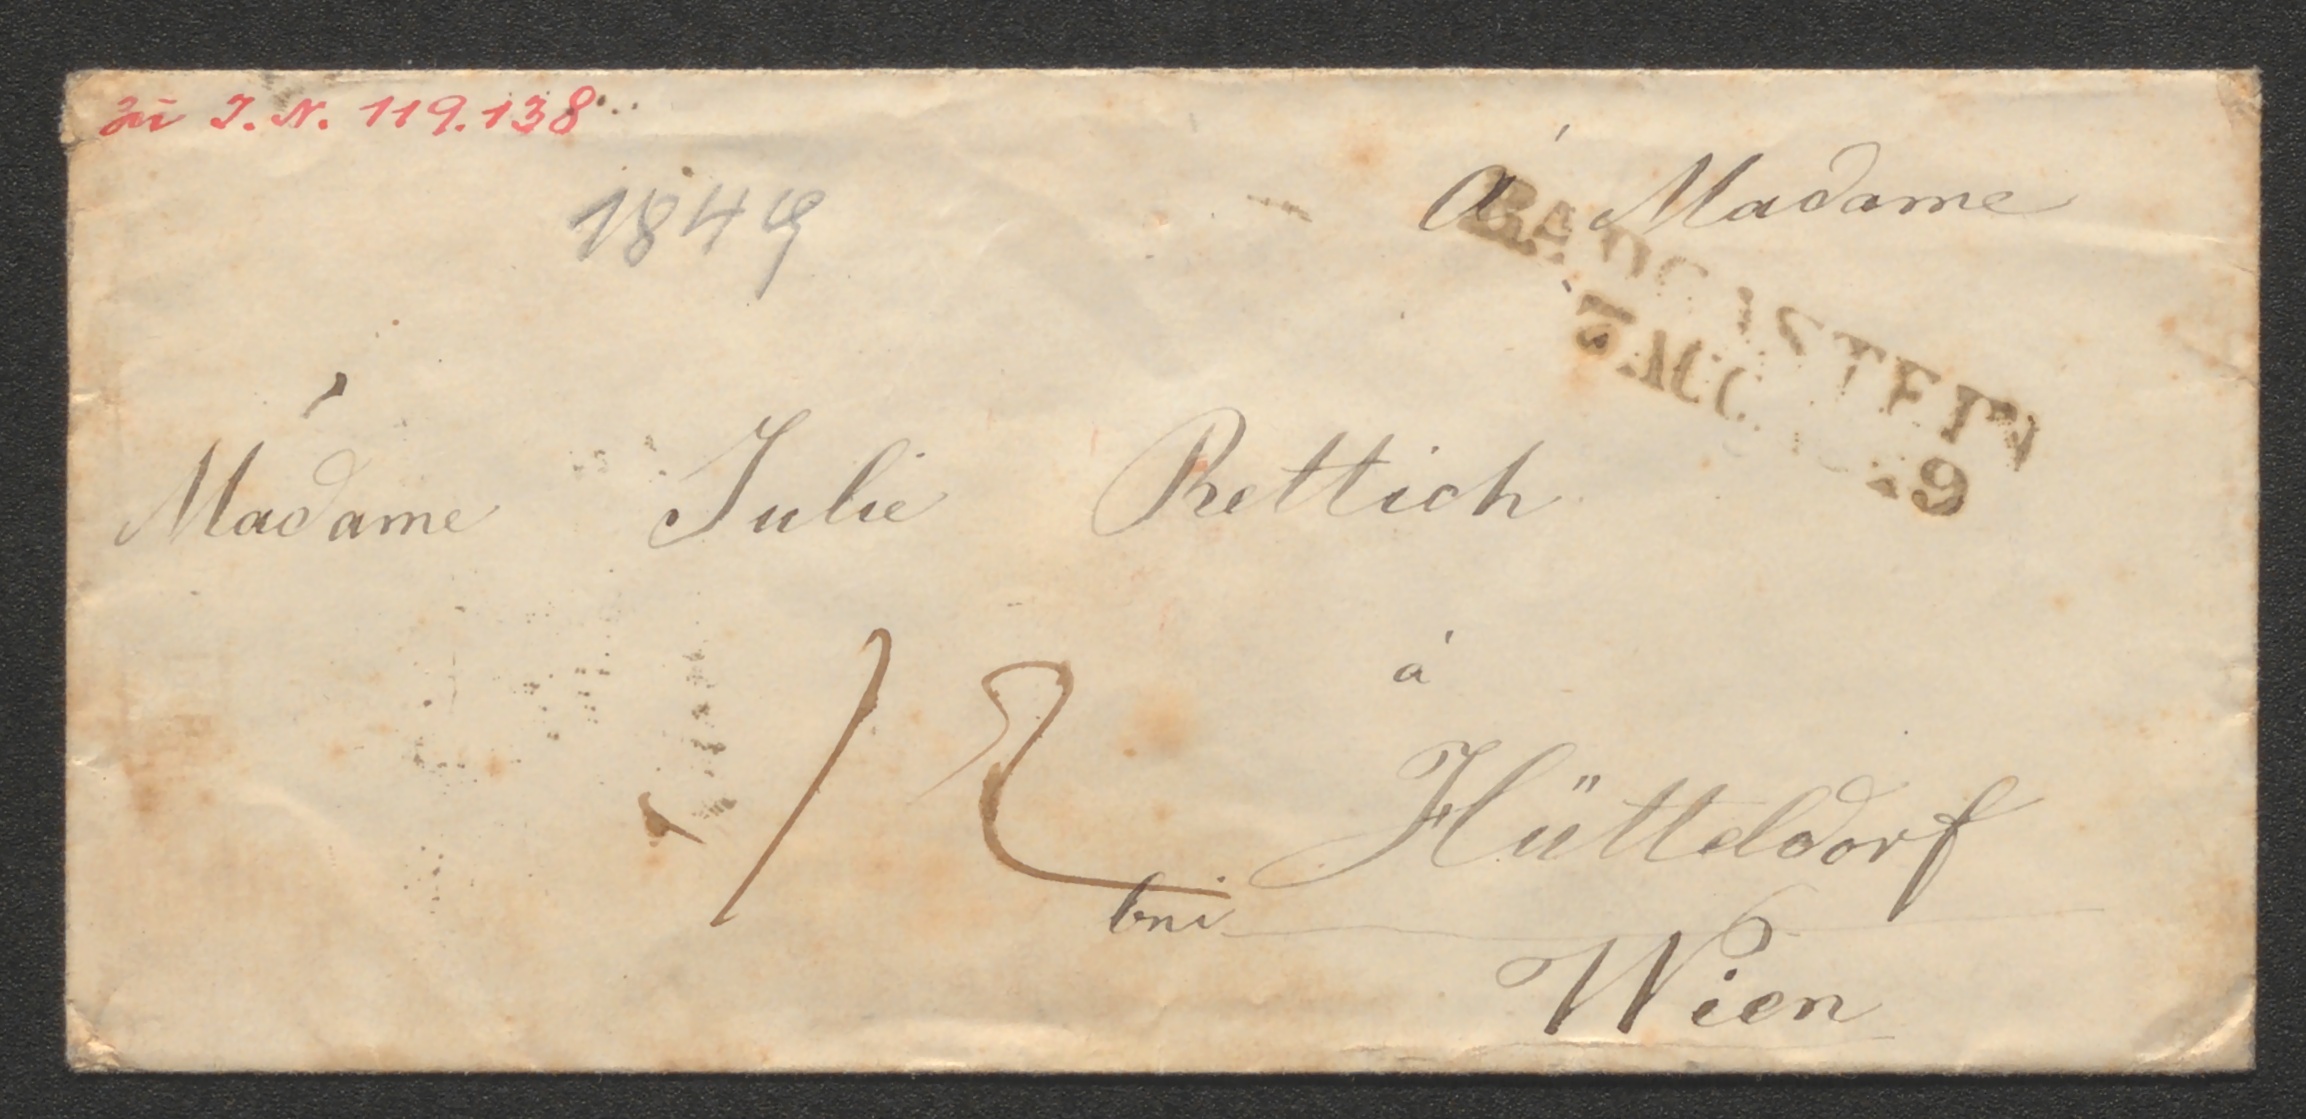 zu I. N. 119.138
1849
à Madame
BADGASTEIN
7 AUG. 1849
Madame Julie Rettich
12
à
Hütteldorf
bei
Wien